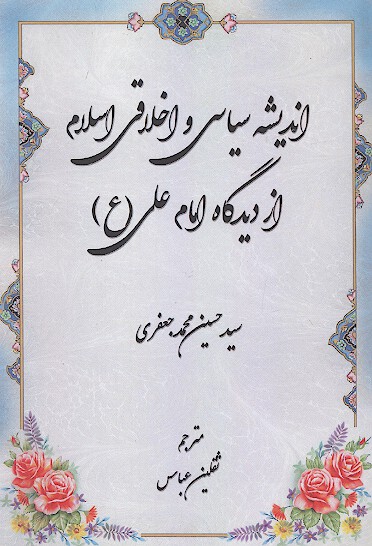 اندیشه سیاسی و اخلاقی اسلام
از دیدگاه امام علی (ع)
سید حسین محمد جعفری
مترجم
ثقلین عباس